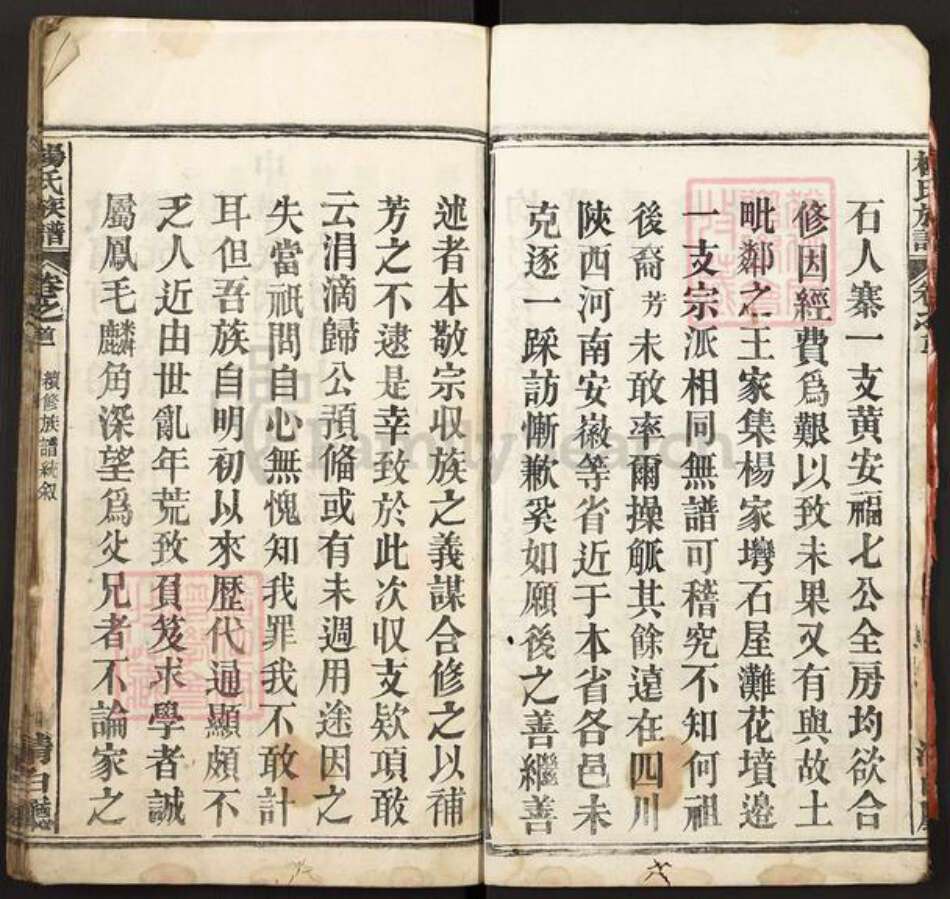 石人寨一支黄安福七公全房均欲合
修因經費爲艱以致未果又有與故土
毗鄰之王家集楊家塆石屋灘花墳邉
一支宗派相同無譜可稽究不知何祖
後裔芳未敢率爾操觚其餘遠在四川
陝西河南安徽等省近于本省各邑未
克逐一踩訪慚歉奚如願後之善繼善
述者本敬宗収族之義謀合修之以補
芳之不逮是幸致於此次収支欵項敢
云涓滴歸公預俻或有未週用途因之
失當祇問自心無愧知我罪我不敢計
耳但吾族自明初以來歷代通顯頗不
乏人近由世亂年荒致負笈求學者誠
屬鳳毛麟角深望爲父兄者不論家之
楊氏族譜
卷之首
續修族譜純叙
清白
FamilySearch